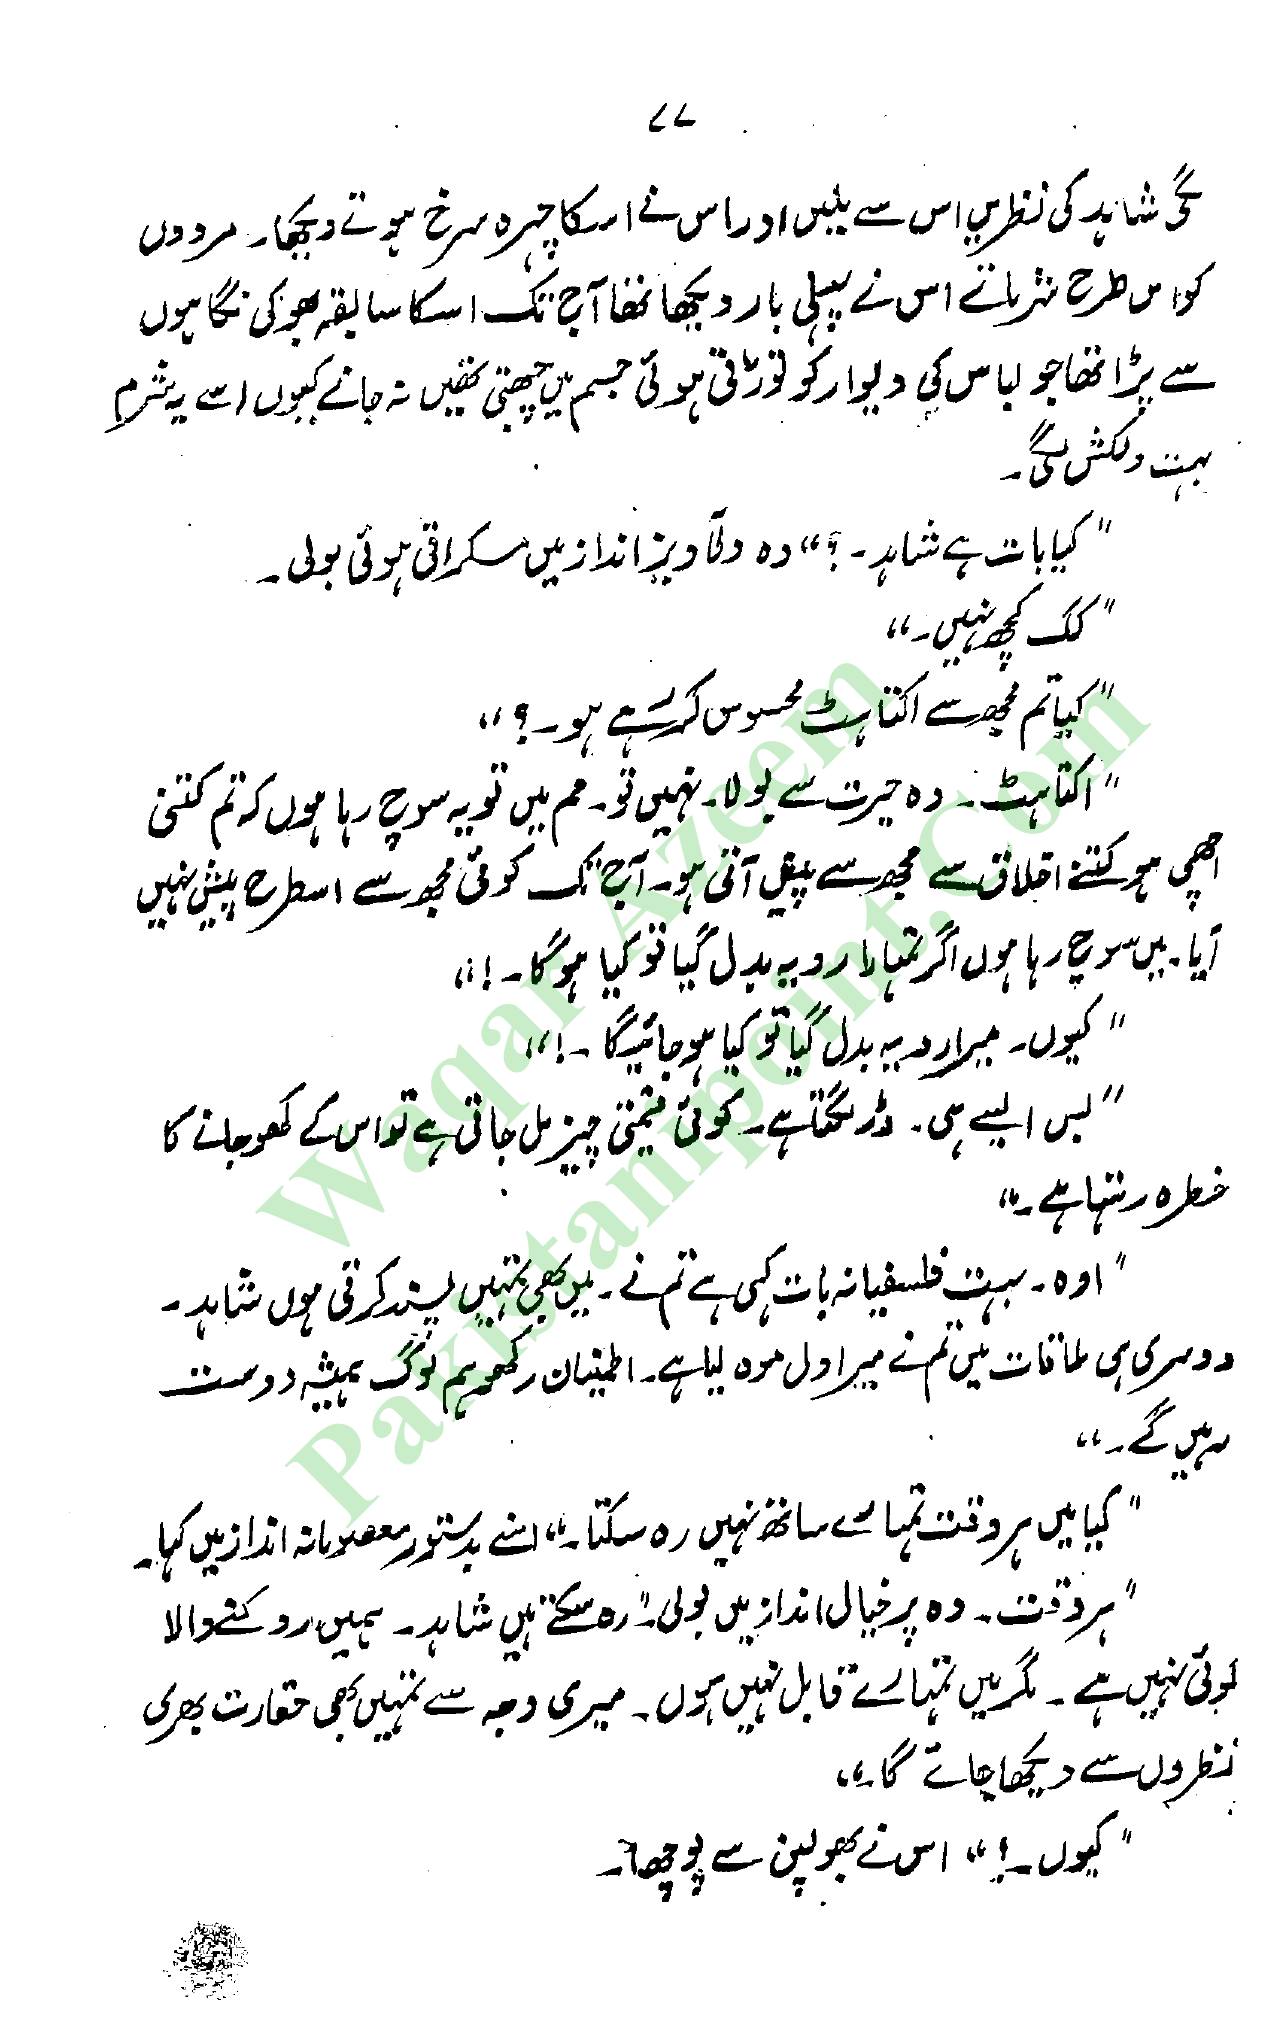 ۷۷
گی شاہد کی نظریں اس سے ملیں اور اس نے اسکا چہرہ سرخ ہوتے دیکھا۔ مردوں
کو اس طرح شرماتے اس نے پہلی بار دیکھا تھا آج تک اسکا سابقہ بھوکی نگاہوں
سے پڑا تھا جو لباس کی دیوار کو توڑتی ہوئی جسم میں چھبتی تھیں نہ جانے کیوں اسے یہ شرم
بہت دلکش لگی۔
"کیا بات ہے شاہد۔ ؟" وہ دلآویز انداز میں مسکراتی ہوئی بولی۔
"کک کچھ نہیں۔"
"کیا تم مجھ سے اکتاہٹ محسوس کر رہے ہو۔ ؟"
"اکتاہٹ۔ وہ حیرت سے بولا۔ نہیں تو۔ مم میں تو یہ سوچ رہا ہوں کہ تم کتنی
اچھی ہو کتنے اخلاق سے مجھ سے پیش آتی ہو۔ آج تک کوئی مجھ سے اسطرح پیش نہیں
آیا۔ میں سوچ رہا ہوں اگر تمہارا رویہ بدل گیا تو کیا ہوگا۔ !"
"کیوں۔ میرا رویہ بدل گیا تو کیا ہو جائیگا۔ !"
"بس ایسے ہی۔ ڈر لگتا ہے۔ کوئی قیمتی چیز مل جاتی ہے تو اس کے کھو جانے کا
خطرہ رہتا ہے۔"
"اوہ۔ بہت فلسفیانہ بات کہی ہے تم نے۔ میں بھی تمہیں پسند کرتی ہوں شاہد۔
دوسری ہی ملاقات میں تم نے میرا دل موہ لیا ہے۔ اطمینان رکھو ہم لوگ ہمیشہ دوست
رہیں گے۔"
"کیا میں ہر وقت تمہارے ساتھ نہیں رہ سکتا۔" اسنے بدستور معصومانہ انداز میں کہا۔
"ہر وقت۔ وہ پر خیال انداز میں بولی۔" رہ سکتے ہیں شاہد۔ ہمیں روکنے والا
کوئی نہیں ہے۔ مگر میں تمہارے قابل نہیں ہوں۔ میری وجہ سے تمہیں بھی حقارت بھری
نظروں سے دیکھا جائے گا۔"
"کیوں۔ !" اس نے بھولپن سے پوچھا۔
Waqar Azeem
Pakistanipoint.Com